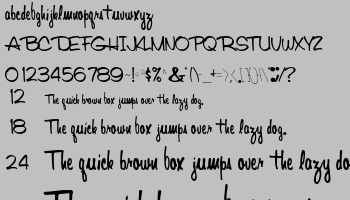 abcdefghijklmnopqrstuvwxyz
ABCDEFGHIJKLMNOPQRSTUVWXYZ
0123456789 ! $% & ( ) - _ + = > ; : / ?
12 The quick brown box jumps over the lazy dog.
18 The quick brown box jumps over the lazy dog.
24 The quick brown box jumps over the lazy do